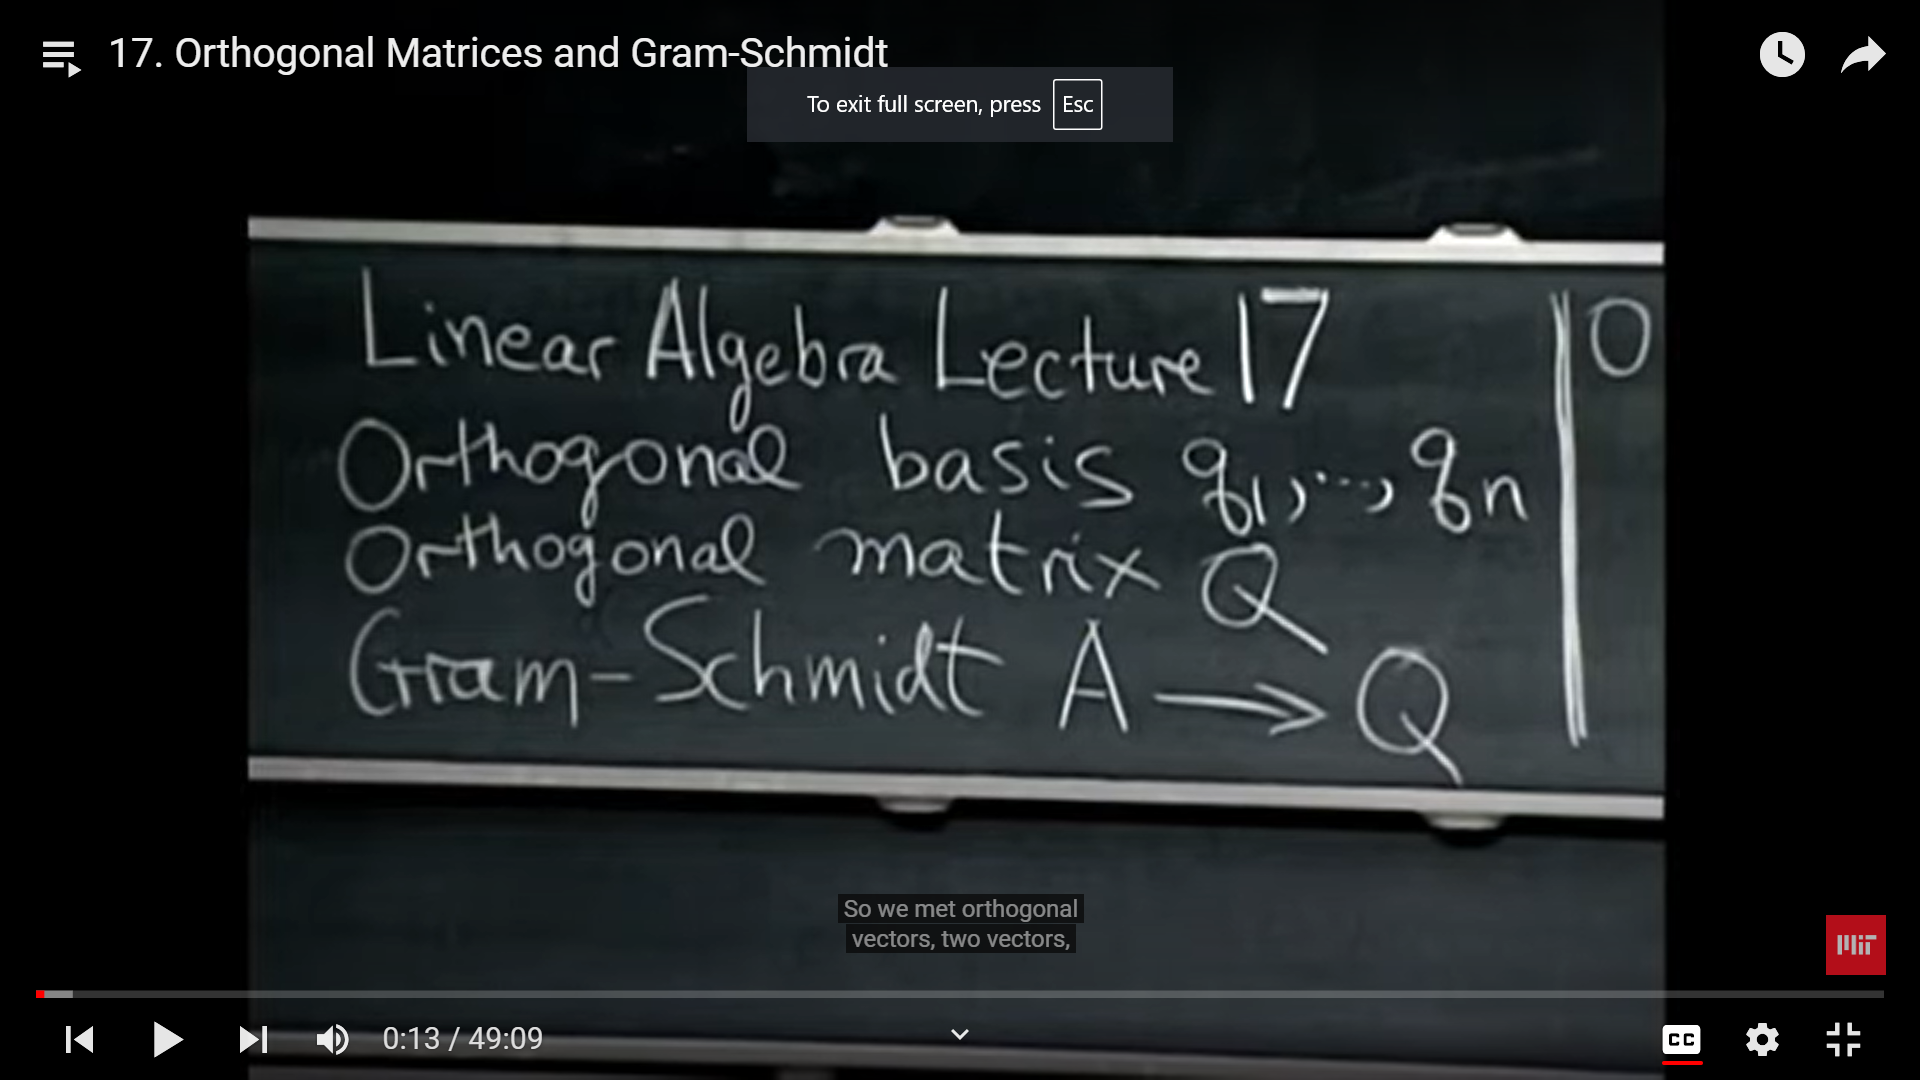 17. Orthogonal Matrices and Gram-Schmidt
To exit full screen, press Esc
Linear Algebra Lecture 17
O
Orthogonal basis q1,...,qn
Orthogonal matrix Q
Gram-Schmidt A → Q
So we met orthogonal
vectors, two vectors,
MiT
0:13 / 49:09
CC